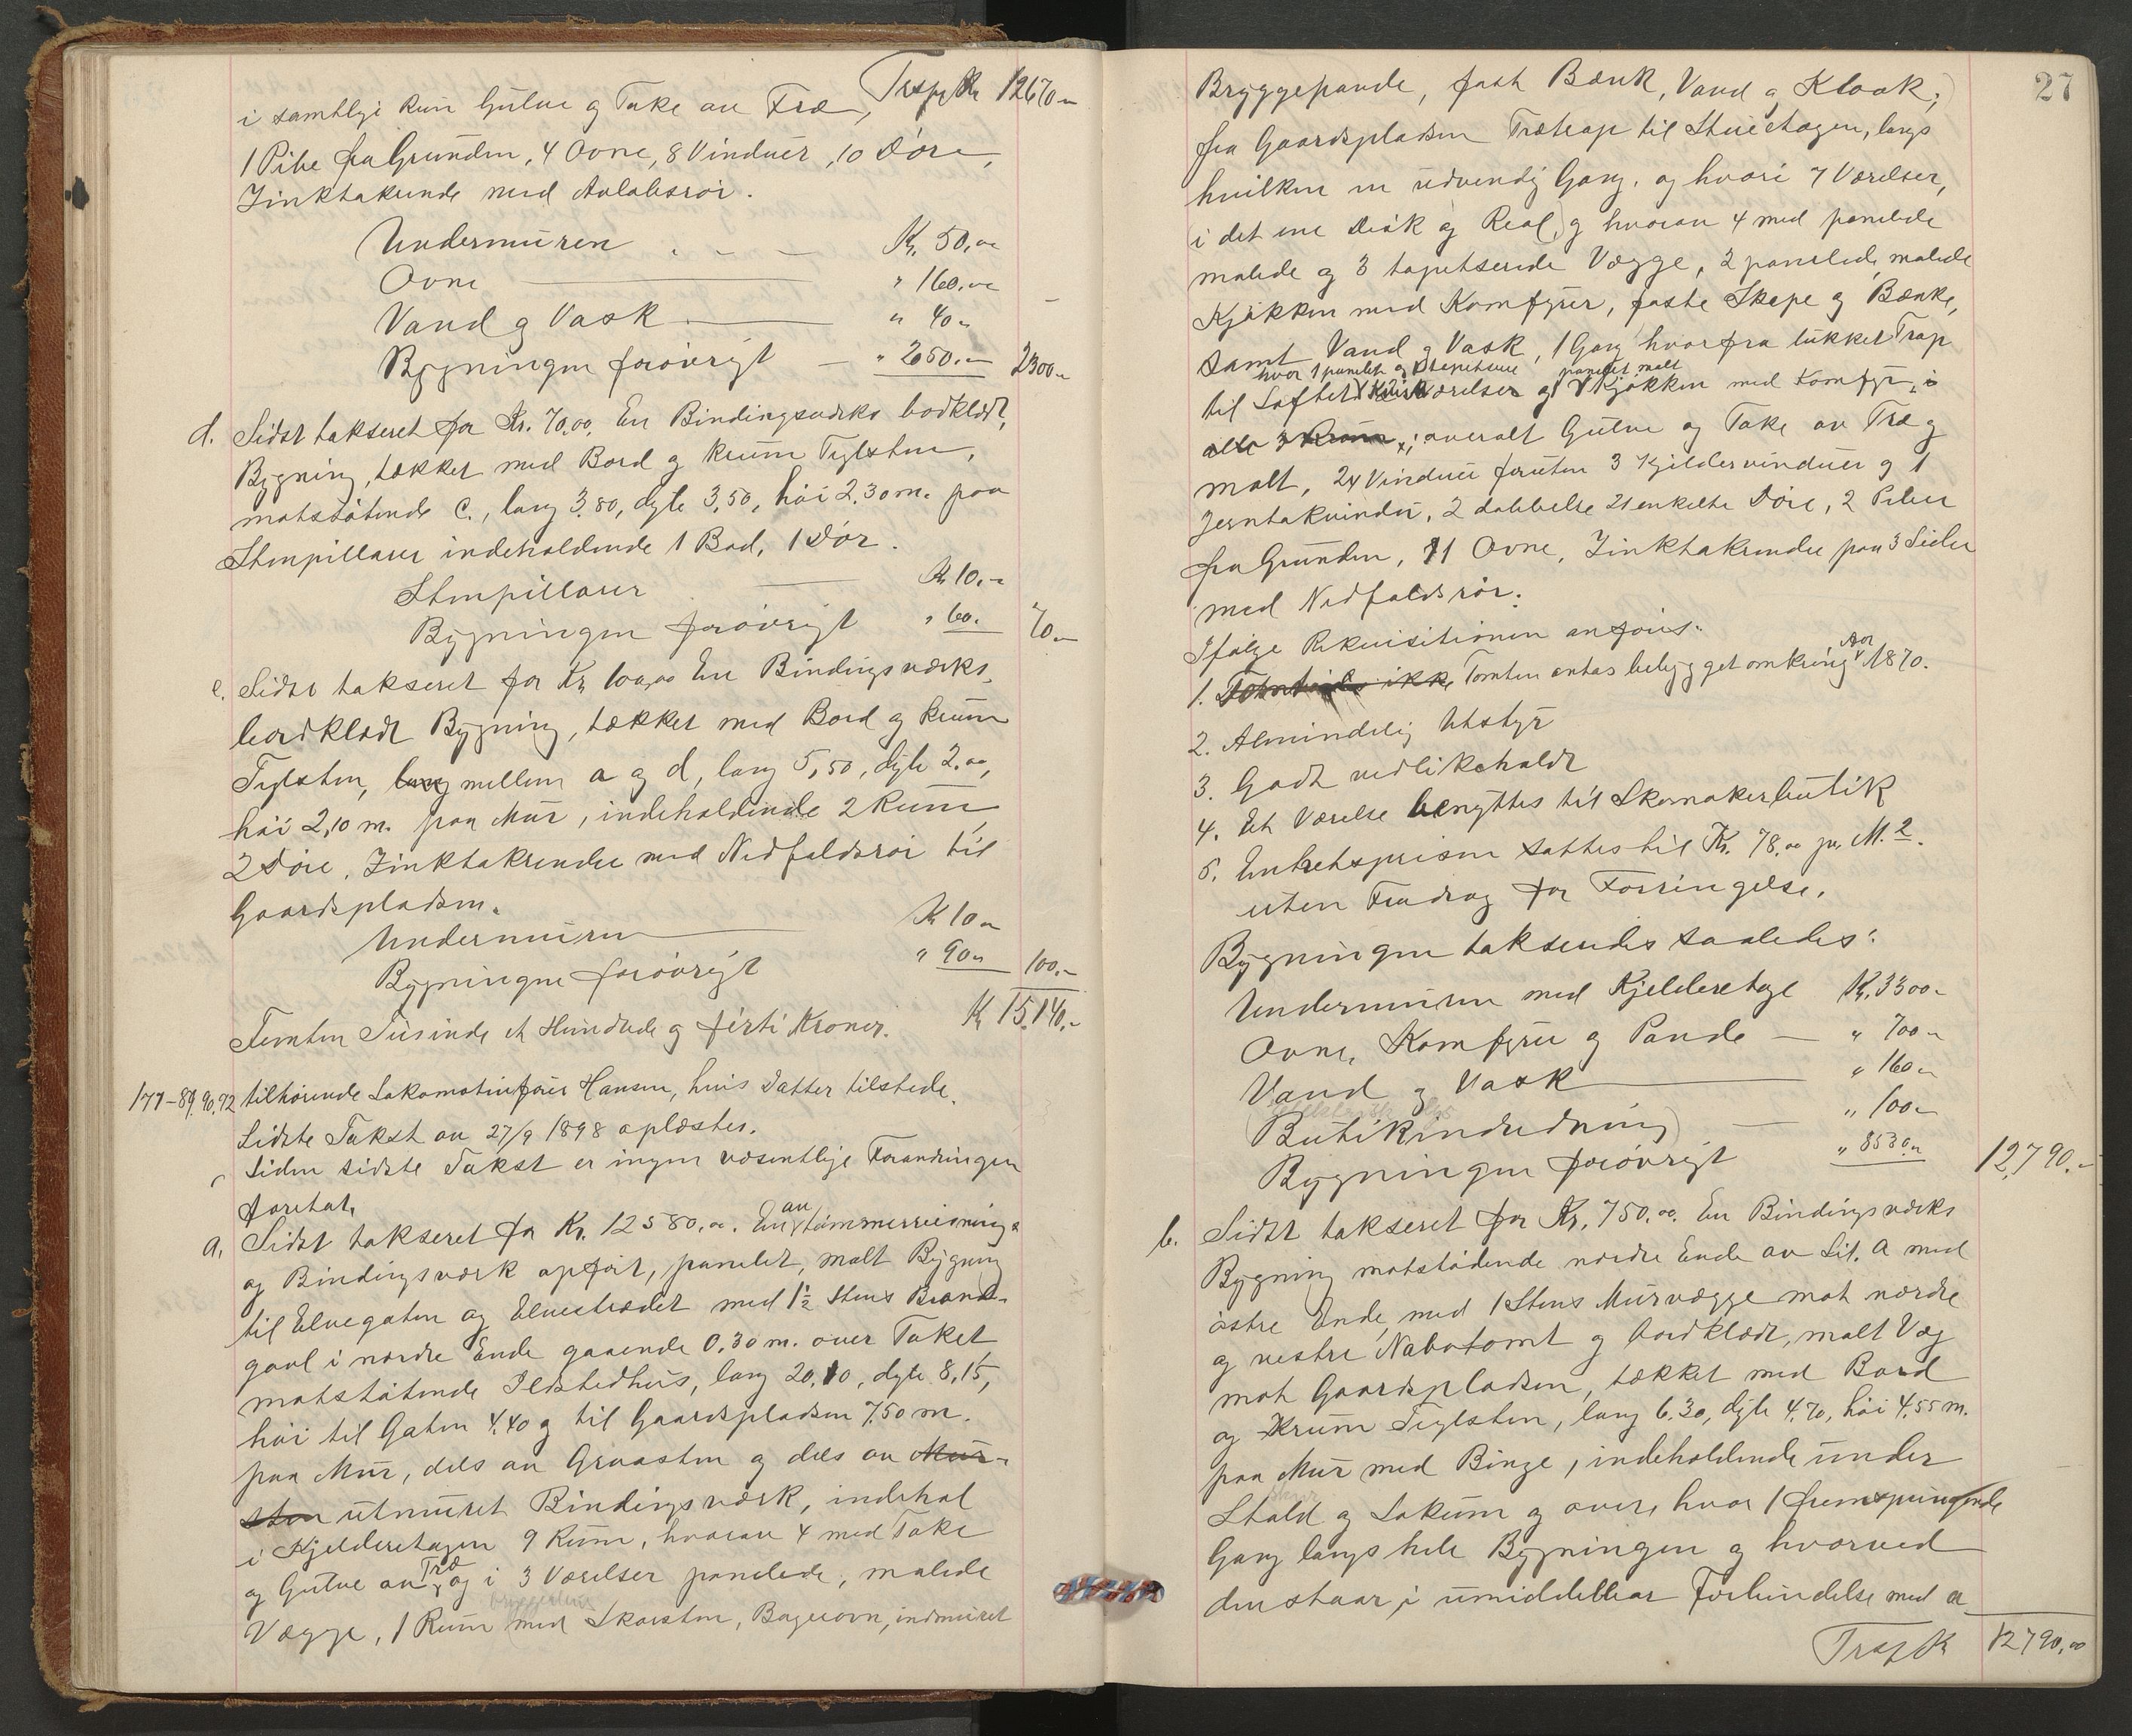 Trspt Kr 12670.-
i samtlige Rum Gulve og Take av Træ,
1 Pibe fra Grunden, 4 Ovne, 8 Vinduer, 10 Døre,
Zinktakrende med Avløbsrør.
Undermuren . - - Kr. 50.00
Ovne " 160.00
Vand og Vask " 40.-
Bygningen forøvrigt - " 2050.- 2300.-
d. Sidst takseret for Kr. 70,00. En Bindingsverks bordklædt,
Bygning, tækket med Bord og krum Teglsten,
motstøtende c., lang 3.80, dyb 3,50, høi 2.30 m. paa
Stenpillarer indeholdende 1 Bod, 1 Dør.
Stenpillarer Kr 10.-
Bygningen forøvrigt " 60.- 70.-
e. Sidst takseret for Kr. 100,00 En Bindingsværks
bordklædt Bygning, tækket med Bord og krum
Teglsten, lang mellem a og d, lang 5,50, dyb 2.00,
høi 2,10 m. paa Mur, indeholdende 2 Rum,
2 Døre, Zinktakrender med Nedfaldsrør til
Gaardspladsen.
Undermuren Kr 10.-
Bygningen forøvrigt " 90.- 100.-
Kr 15.140.-
Femten Tusinde et Hundrede og førti Kroner.
177-89.90.92 tilhørende Lokomotivfører Hansen, hvis Datter tilstede.
Sidste Takst av 27/9 1898 oplæstes.
Siden sidste Takst er ingen væsentlige Forandringer
foretat.
a. Sidst takseret for Kr. 12580.00. En av tømmerreisning
og Bindingsværk opført, panelet, malt Bygning
til Elvegaten og Elvestrædet med 1½ Stens Brand-
gavl i nordre Ende gaaende 0.30 m. over Taket
motstøtende Ildstedhus, lang 20,10, dyb 8,15,
høi til Gaten 4.40 og til Gaardspladsen 7.50 m.
paa Mur, dels av Graasten og dels av Mur-
sten utmuret Bindingsværk, indehol
i Kjelderetagen 9 Rum, hvorav 4 med Take
og Gulve av Træ og i 3 Værelser panelede, malede
Vægge, 1 Rum (bryggerhus) med Skorsten, Bagerovn, indmuret
27
Bryggepande, fast Bænk, Vand og Kloak;
fra Gaardspladsen Trætrap til Stueetagen, langs
hvilken en udvendig Gang, og hvori 7 Værelser,
(i det ene Disk og Reol) og hvorav 4 med panelede
malede og 3 tapetserede Vægge, 2 panelede, malede
Kjøkken med Komfyrer, faste Skape og Bænke,
samt Vand og Vask, 1 Gang hvorfra lukket Trap
hvor 1 panelet og tapetsere panelet malt
til Loftet Værelser og 1 Kjøkken med Komfyr, i
alt 3 Rum; overalt Gulve og Take av Træ og
malt, 24 Vinduer foruten 3 Kjeldervinduer og 1
Jerntakvindu, 2 dobbelte 21 enkelte Døre, 2 Piber
fra Grunden, 11 Ovne, Zinktakrender paa 3 Sider
med Nedfaldsrør.
Ifølge Rekvisitionen anføres:
1. ikke Tomten antas bebygget omkring Aar 1870.
2. Almindelig Utstyr
3. Godt vedlikeholdt
4. Et Værelse benyttes til Skomakerbutik
5. Enhetsprisen sættes til Kr. 78.00 pr. M.2.
uten Fradrag for Forringelse.
Bygningen takseredes saaledes:
Undermuren med Kjelderetage Kr. 3300.-
Ovne, Komfyrer og Pande - " 700.-
Vand og Vask " 160.-
(Butikindredning) - " 100.-
Bygningen forøvrigt " 8530.- 12,790.-
b. Sidst takseret for Kr. 750.00. En Bindingsværks
Bygning motstødende nordre Ende av Lit. a med
østre Ende, med 1 Stens Murvægge mot nordre
og vestre Nabotomt og bordklædt, malt Væg
mot Gaardspladsen, tækket med Bord
og krum Teglsten, lang 6.30, dyb 4.70, høi 4.55 m.
paa Mur med Binge, indeholdende under
Stald og Lokum og over, hvor 1 fremspringende
Gang langs hele Bygningen og hvorved
den staar i umiddelbar Forbindelse med a
Trspt Kr 12790.00